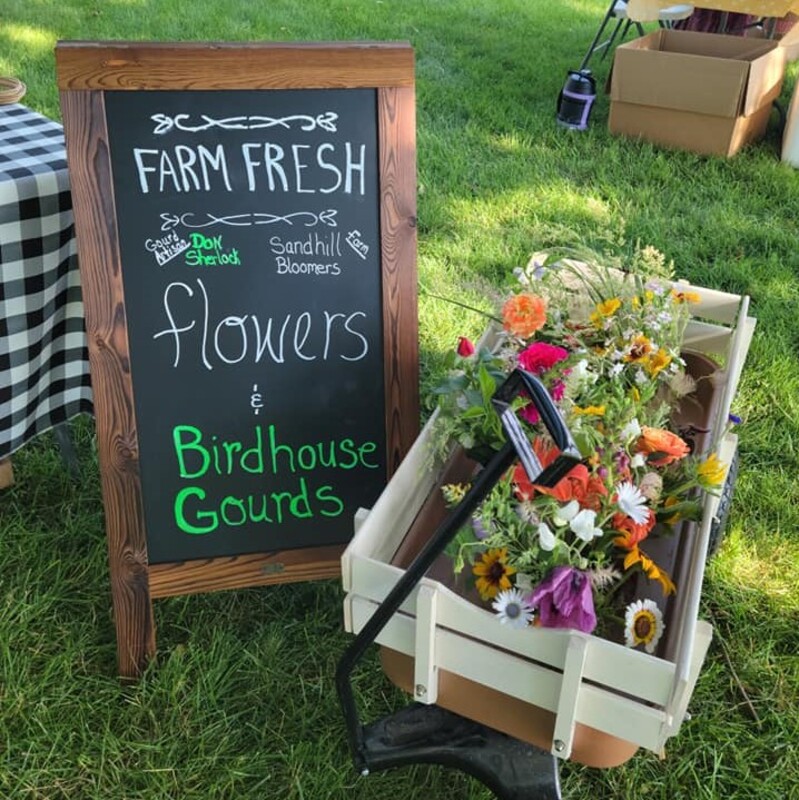 FARM FRESH
Gourd Artisan Don Sherlock
Sandhill Bloomers Farm
flowers
&
Birdhouse
Gourds